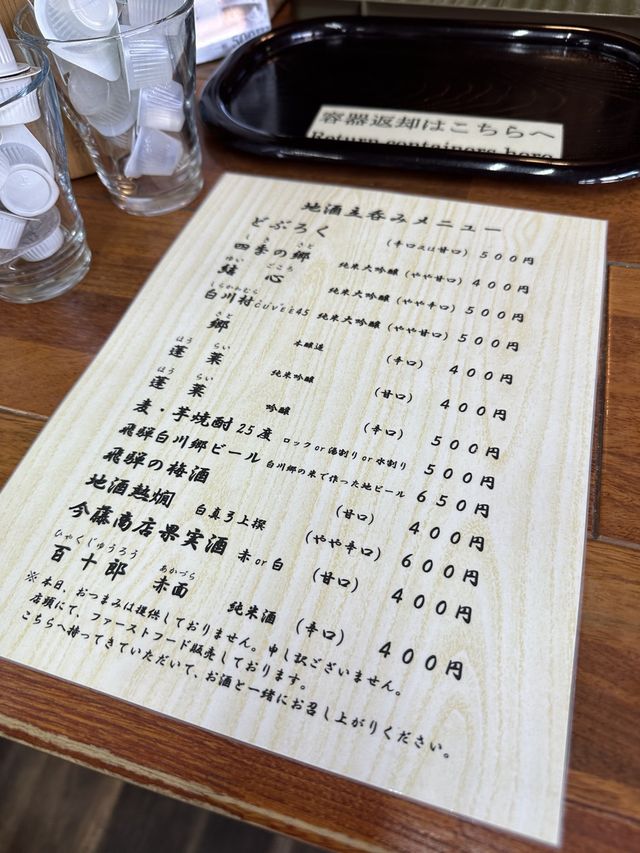 500円
容器返却はこちらへ
Return containers here
地酒立呑みメニュー
どぶろく (辛口又は甘口) 500円
しき さと
四季の郷 純米大吟醸 (やや甘口) 400円
ゆい ごころ
結 心 純米大吟醸 (やや辛口) 500円
しらかわむら
白川村CUVEE45 純米大吟醸 (やや甘口) 500円
さと
郷 本醸造 (辛口) 400円
ほう らい
蓬 莱 純米吟醸 (甘口) 400円
ほう らい
蓬 莱 吟醸 (辛口) 500円
麦・芋焼酎25度 ロックor湯割りor水割り 500円
飛騨白川郷ビール 白川郷の米で作った地ビール 650円
飛騨の梅酒 (甘口) 400円
地酒熱燗 白真弓上撰 (やや辛口) 600円
今藤商店果実酒 赤or白 (甘口) 400円
ひゃくじゅうろう あかづら
百十郎 赤面 純米酒 (辛口) 400円
※本日、おつまみは提供しておりません。申し訳ございません。
店頭にて、ファーストフード販売しております。
こちらへ持ってきていただいて、お酒と一緒にお召し上がりください。